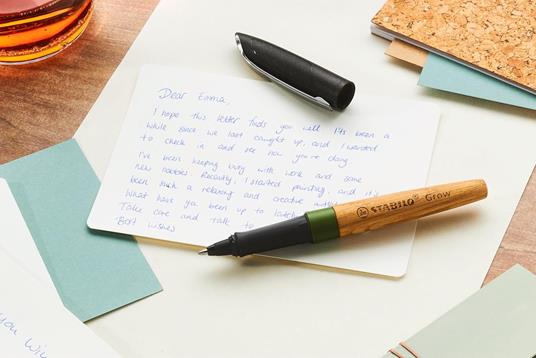 Dear Emma,
I hope this letter finds you well. It's been a
while since we last caught up, and I wanted
to check in and see how you're doing
I've been keeping busy with work and some
new hobbies. Recently, I started painting, and it's
been such a relaxing and creative
What have you been up to
Take care and talk to
Best wishes
STABILO® Grow
you